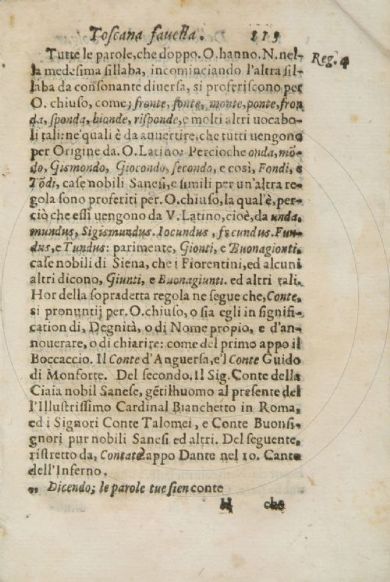 Toscana favella. 119
Tutte le parole, che doppo. O. hanno. N. nel-
la medesima sillaba, incominciando l'altra sil-
laba da consonante diuersa, si proferiscono per
O. chiuso, come; fronte, fonte, monte, ponte, fron
da, sponda, bionde, risponde, e molti altri uocabo-
li tali: ne' quali è da auuertire, che tutti uengono
per Origine da. O. Latino: Percioche onda, mō-
do, Gismondo, Giocondo, secondo, e così, Fondi, e
Tōdi, case nobili Sanesi, e simili per un'altra re-
gola sono proferiti per. O. chiuso, la qual'è, per-
ciò che essi uengono da V. Latino, cioè, da unda,
mundus, Sigismundus. Iocundus, fecundus. Fun-
dus, e Tundus: parimente, Gionti, e Buonagionti,
case nobili di Siena, che i Fiorentini, ed alcuni
altri dicono, Giunti, e Buonagiunti. ed altri tali.
Hor della sopradetta regola ne segue che, Conte,
si pronuntij per. O. chiuso, o sia egli in signifi-
cation di, Degnità, o di Nome propio, e d'an-
nouerare, o di chiarire: come del primo appo il
Boccaccio. Il Conte d'Anguersa, e'l Conte Guido
di Monforte. Del secondo. Il Sig. Conte della
Ciaia nobil Sanese, gētilhuomo al presente del
l'Illustrissimo Cardinal Bianchetto in Roma,
ed i Signori Conte Talomei, e Conte Buonsi-
gnori pur nobili Sanesi ed altri. Del seguente,
ristretto da, Contate appo Dante nel 10. Canto
dell'Inferno.
„ Dicendo; le parole tue sien conte
H che
Reg. 4